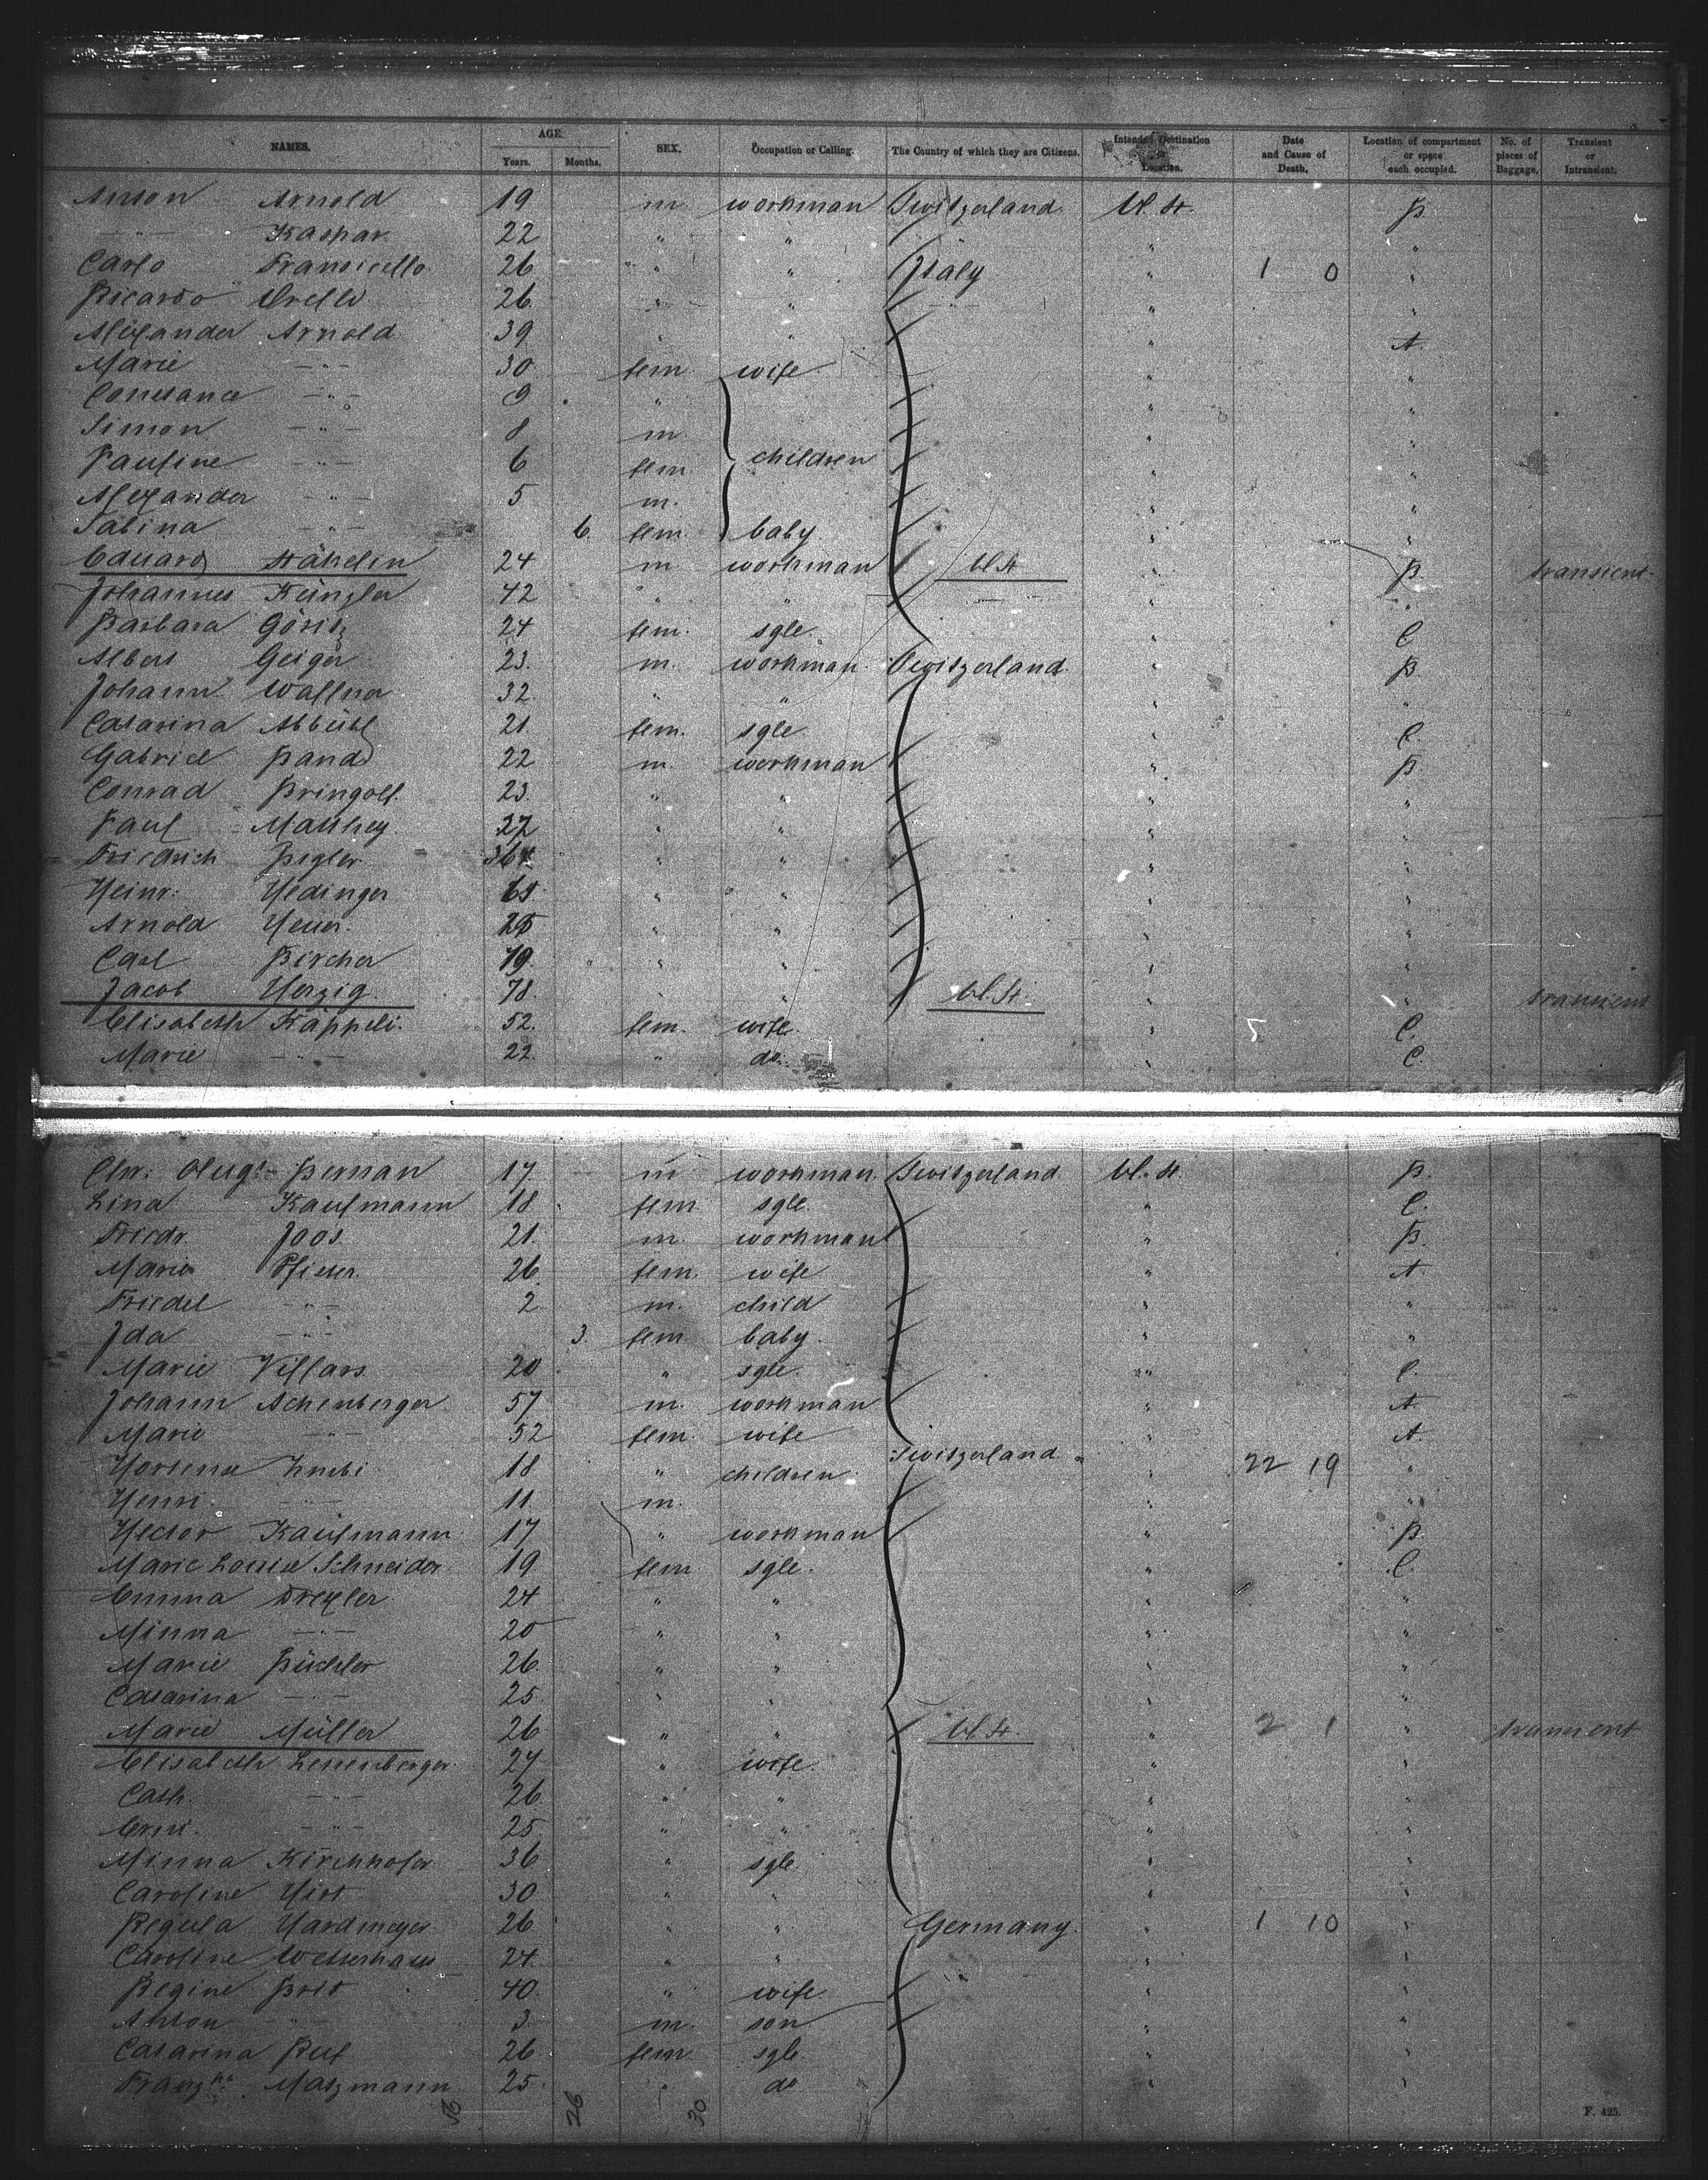 NAMES. AGE. Years. Months. SEX. Occupation or Calling. The Country of which they are Citizens. Intended Destination or Location. Date and Cause of Death. Location of compartment or space each occupied. No. of pieces of Baggage. Transient or Intransient.
Anton Arnold 19 m workman Switzerland U. St. B.
" Kaspar 22 " " " "
Carlo 26 " " Italy " 1 0 "
Ricardo Orelli 26 " " " " "
Alexander Arnold 39 " " " A.
Marie " 30 fem wife " "
Constance " 9 " " "
Simon " 8 m " "
Pauline " 6 fem children " "
Alexander " 5 m. " "
Sabina " 6. fem. baby " "
Eduard Stähelin 24 m workman U. St " B. transient
Johannes Künzler 42 " " " " "
Barbara Göritz 24 fem. sgle. " C
Albert Geiger 23. m. workman Switzerland " B.
Johann Wallner 32 " " " "
Catarina Abbühl 21 fem. sgle " C.
Gabriel Band 22 m. workman " B.
Conrad Bringolf. 23. " " " "
Paul Matthey. 27 " " " "
Friedrich " " " "
Heinr: Hedinger " " " "
Arnold " " " "
Carl Bircher 19. " " " "
Jacob Herzig. 78. " " U. St. " " transient
Elisabeth Käppeli. 52. fem. wife. " 5 C.
Marie " 22. " do. " C.
Chr: Augt Beman 17. m workman. Switzerland U. St. B.
Lina Kaufmann 18. fem sgle. " C.
Friedr. Joos 21. m. workman " B.
Marie Pfister. 26. fem. wife " A.
Friedel " 2 m. child " "
Ida " 3. fem baby. " "
Marie Villars. 20 " sgle. " C.
Johann Aschenberger 57 m. workman " A.
Marie " 52 fem. wife " A.
Hortense 18 " children. Switzerland " 22 19 "
Henri " 11. m. " "
Hector Kaufmann 17 " workman " B.
Marie Louise Schneider 19 fem sgle. " C.
Emma Drexler 24 " " " "
Minna " 20 " " " "
Marie Büchler 26. " " " "
Catarina " 25. " " " "
Marie Müller 26 " " U. St. " 2 1 " transient
Elisabeth Leuenberger. 27 " wife. " "
Cath. " 26. " " " "
Erni. " 25 " " " "
Minna Kirchhofer. 36 " sgle. " "
Caroline Hirt 30 " " " "
Regula Hardmeyer 26 " " Germany. " 1 10 "
Caroline 24. " " " "
Regine 40. " wife " "
Anton " 3. m. son " "
Catarina Ruf 26 fem sgle. " "
Franzka Matzmann 25. " do " "
16 26 30
F. 425.